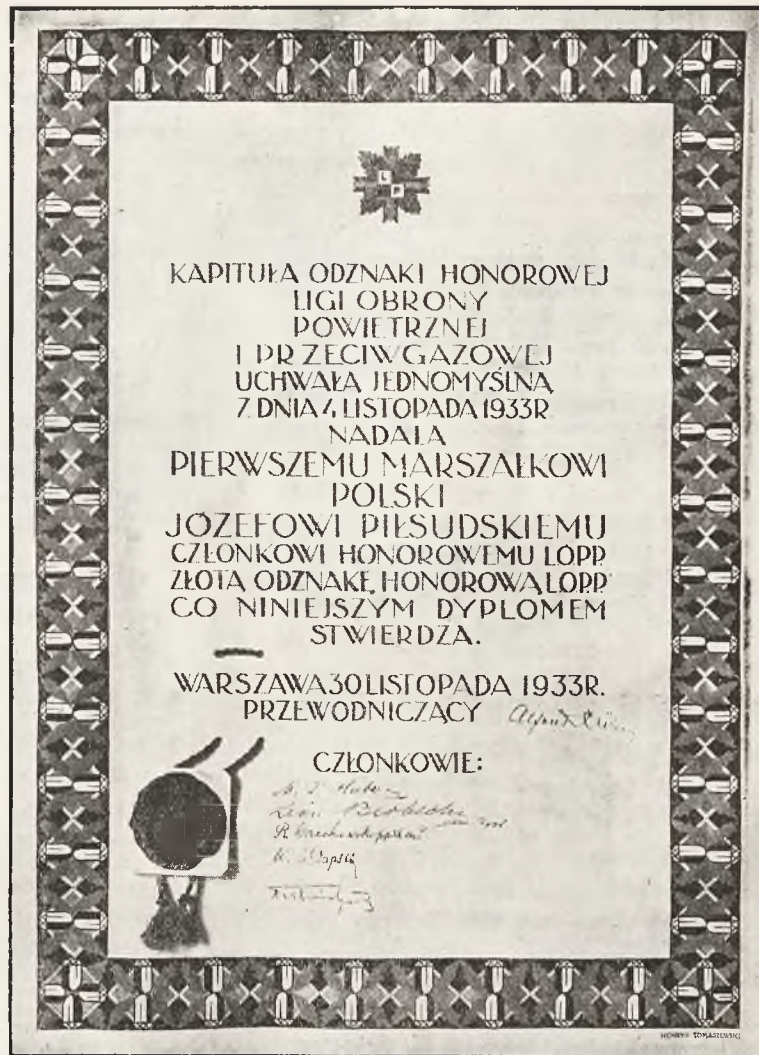 L
P
KAPITUŁA ODZNAKI HONOROWEJ
LIGI OBRONY
POWIETRZNEJ
I PRZECIWGAZOWEJ
UCHWAŁĄ JEDNOMYŚLNĄ
Z DNIA 4 LISTOPADA 1933R
NADAŁA
PIERWSZEMU MARSZAŁKOWI
POLSKI
JÓZEFOWI PIŁSUDSKIEMU
CZŁONKOWI HONOROWEMU LOPP.
ZŁOTĄ ODZNAKĘ HONOROWĄ LOPP.
CO NINIEJSZYM DYPLOMEM
STWIERDZA.
WARSZAWA 30 LISTOPADA 1933R.
PRZEWODNICZĄCY
CZŁONKOWIE:
HENRYK TOMASZEWSKI